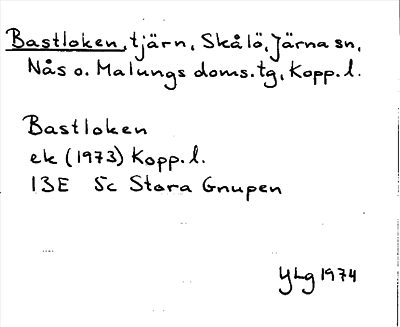 Bastloken, tjärn, Skålö, Järna sn,
Nås o. Malungs doms.tg, Kopp.l.
Bastloken
ek (1973) Kopp.l.
13E 5c Stora Gnupen
YLg 1974